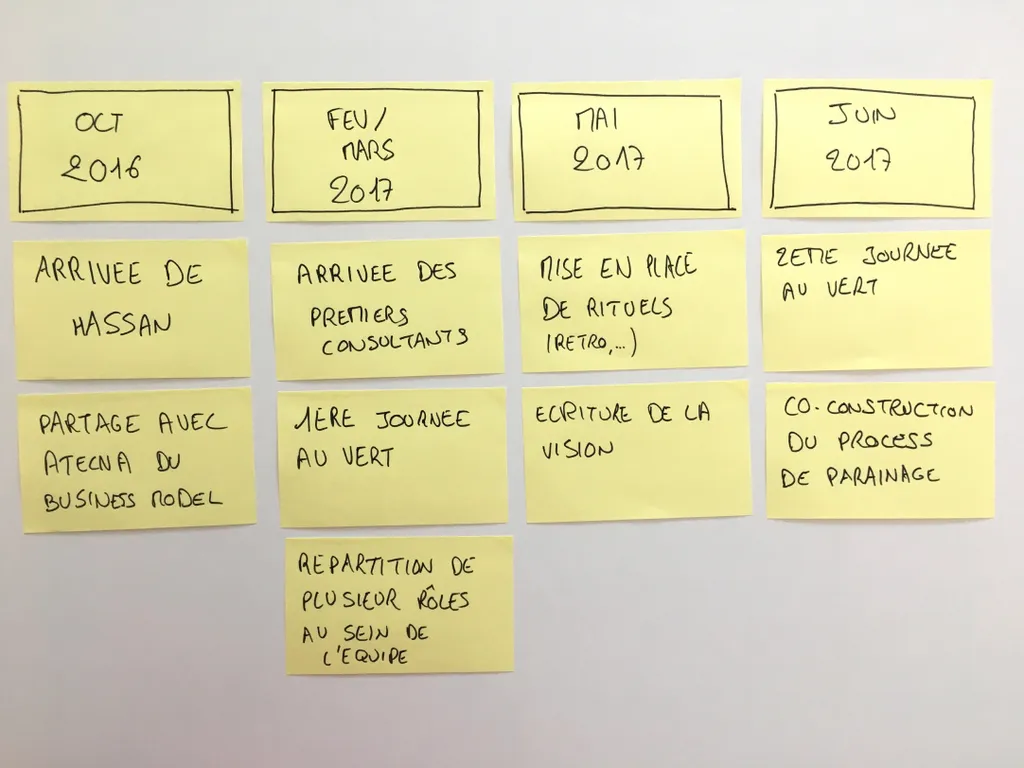 OCT
2016
ARRIVEE DE
HASSAN
PARTAGE AVEC
ATECNA DU
BUSINESS MODEL
FEV/
MARS
2017
ARRIVEE DES
PREMIERS
CONSULTANTS
1ERE JOURNEE
AU VERT
REPARTITION DE
PLUSIEUR RÔLES
AU SEIN DE
L'EQUIPE
MAI
2017
MISE EN PLACE
DE RITUELS
(RETRO,...)
ECRITURE DE LA
VISION
JUIN
2017
2EME JOURNEE
AU VERT
CO-CONSTRUCTION
DU PROCESS
DE PARAINAGE